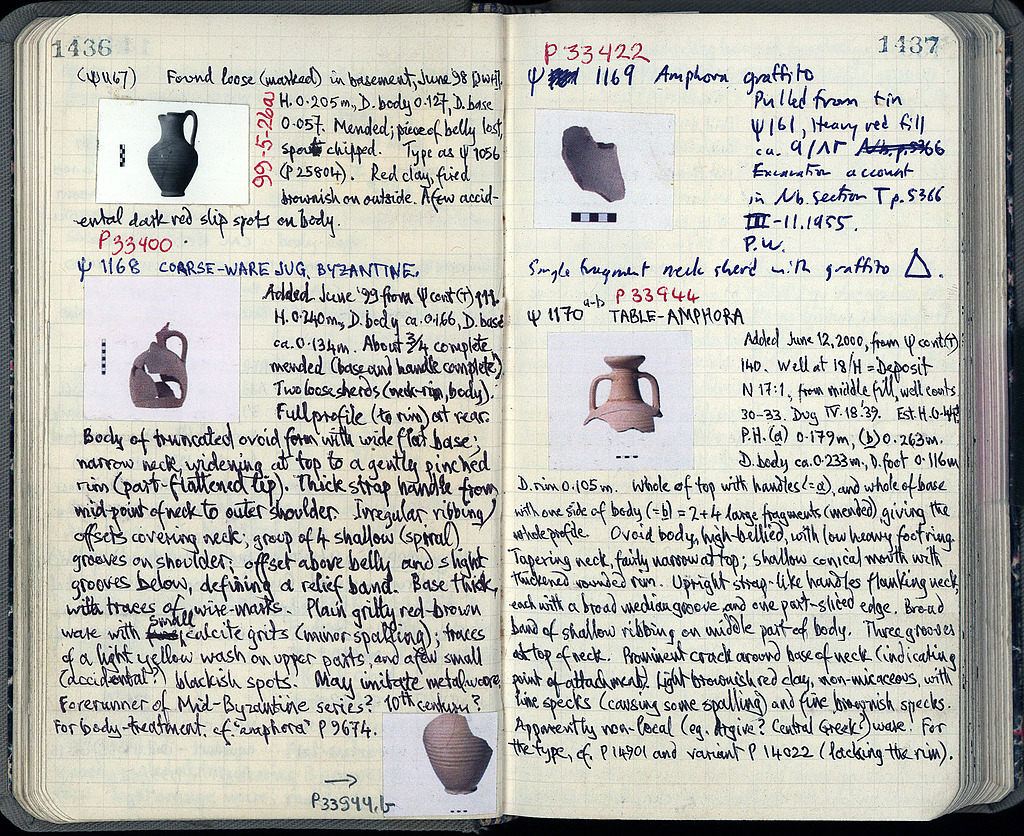 1436
(Ψ1167) Found loose (marked) in basement, June '98
H. 0.205m, D. body 0.127, D. base
0.057. Mended; piece of belly lost,
spout chipped. Type as Ψ 1056
(P25804). Red clay, fired
brownish on outside. A few accid-
ental dark red slip spots on body.
99-5-26a
P33400
Ψ 1168 COARSE-WARE JUG, BYZANTINE.
Added June '99 from Ψ cont(T)
H. 0.240m, D. body ca. 0.166, D. base
ca. 0.134m. About 3/4 complete
mended (base and handle complete)
Two loose sherds (neck-rim, body).
Full profile (to rim) at rear.
Body of truncated ovoid form with wide flat base;
narrow neck, widening at top to a gently pinched
rim (part-flattened lip). Thick strap handle from
mid-point of neck to outer shoulder. Irregular ribbing/
offsets covering neck; group of 4 shallow (spiral)
grooves on shoulder; offset above belly and slight
grooves below, defining a relief band. Base thick,
with traces of wire-marks. Plain gritty red-brown
ware with small calcite grits (minor spalling); traces
of a light yellow wash on upper parts, and a few small
(accidental?) blackish spots. May imitate metalware.
Forerunner of Mid-Byzantine series? 10th century?
For body-treatment, cf. "amphora" P 9674.
→
P33944,b
1437
P 33422
Ψ 1169 Amphora graffito
Pulled from tin
Ψ161, Heavy red fill
ca. 9/ΛΓ
Excavation account
in Nb. section T p. 5366
III-11.1955.
P.W.
Single fragment neck sherd with graffito Δ.
P 33944
Ψ 1170 a-b TABLE-AMPHORA
Added June 12, 2000, from Ψ cont(T)
140. Well at 18/H = Deposit
N 17:1, from middle fill, well conts
30-33. Dug IV.18.'39. Est. H. 0.44?
P.H. (a) 0.179m, (b) 0.263m.
D. body ca. 0.233m, D. foot 0.116m
D. rim 0.105m. Whole of top with handles (=a), and whole of base
with one side of body (=b) = 2+4 large fragments (mended), giving the
whole profile. Ovoid body, high-bellied, with low heavy foot ring.
Tapering neck, fairly narrow at top; shallow conical mouth with
thickened rounded rim. Upright strap-like handles flanking neck,
each with a broad median groove and one part-sliced edge. Broad
band of shallow ribbing on middle part of body. Three grooves
at top of neck. Prominent crack around base of neck (indicating
point of attachment). Light brownish red clay, non-micaceous, with
lime specks (causing some spalling) and fine brownish specks.
Apparently non-local (eg. Argive? Central Greek?) ware. For
the type, cf. P 14901 and variant P 14022 (lacking the rim).